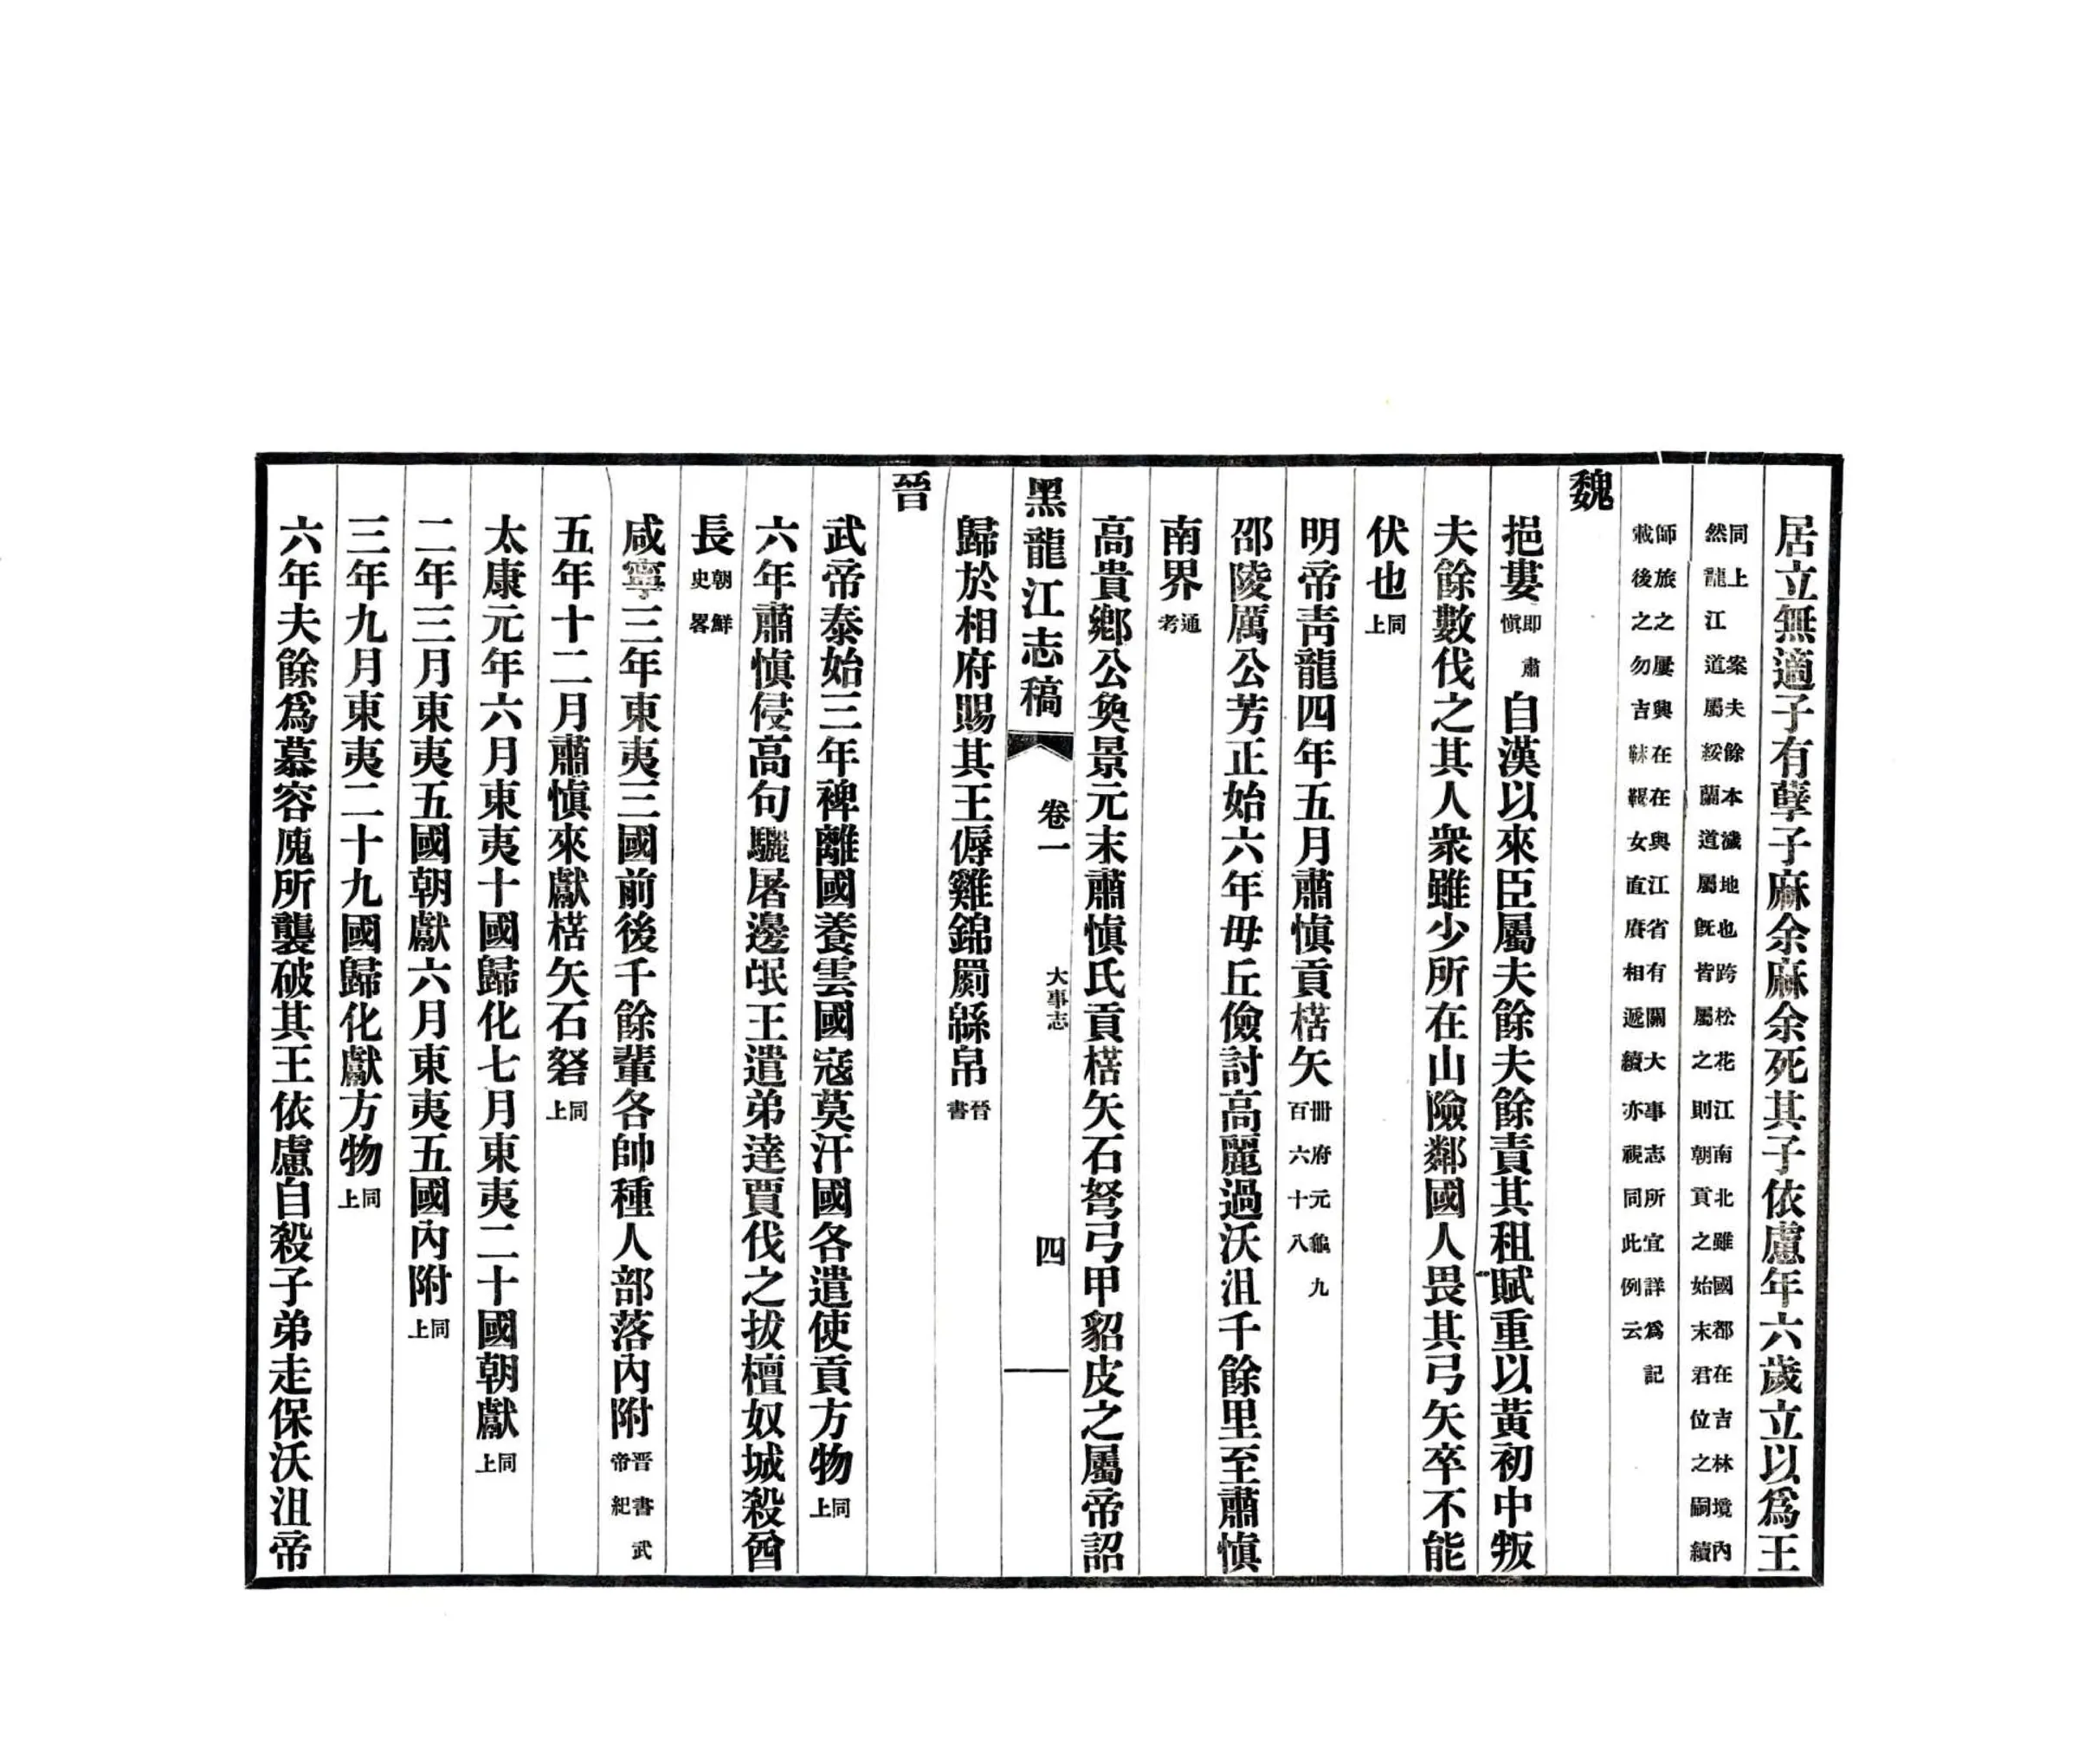 居立無適子有孽子麻余麻余死其子依慮年六歲立以爲王
同上　案夫餘本濊地也跨松花江南北雖國都在吉林境內
然龍江道屬綏蘭道屬旣皆屬之則朝貢之始末君位之嗣續
師旅之屢興在在與江省有關大事志所宜詳爲記
載後之勿吉靺鞨女直賡相遞續亦視同此例云
魏
挹婁即肅愼自漢以來臣屬夫餘夫餘責其租賦重以黃初中叛
夫餘數伐之其人衆雖少所在山險鄰國人畏其弓矢卒不能
伏也同上
明帝靑龍四年五月肅愼貢楛矢册府元龜九百六十八
邵陵厲公芳正始六年毋丘儉討高麗過沃沮千餘里至肅愼
南界通考
高貴鄉公奐景元末肅愼氏貢楛矢石弩弓甲貂皮之屬帝詔
黑龍江志稿　卷一　大事志　四
歸於相府賜其王傉雞錦罽緜帛晉書
晉
武帝泰始三年裨離國養雲國寇莫汗國各遣使貢方物同上
六年肅愼侵高句驪屠邊氓王遣弟達賈伐之拔檀奴城殺酋
長朝鮮史畧
咸寧三年東夷三國前後千餘輩各帥種人部落內附晋書武帝紀
五年十二月肅愼來獻楛矢石砮同上
太康元年六月東夷十國歸化七月東夷二十國朝獻同上
二年三月東夷五國朝獻六月東夷五國內附同上
三年九月東夷二十九國歸化獻方物同上
六年夫餘爲慕容廆所襲破其王依慮自殺子弟走保沃沮帝